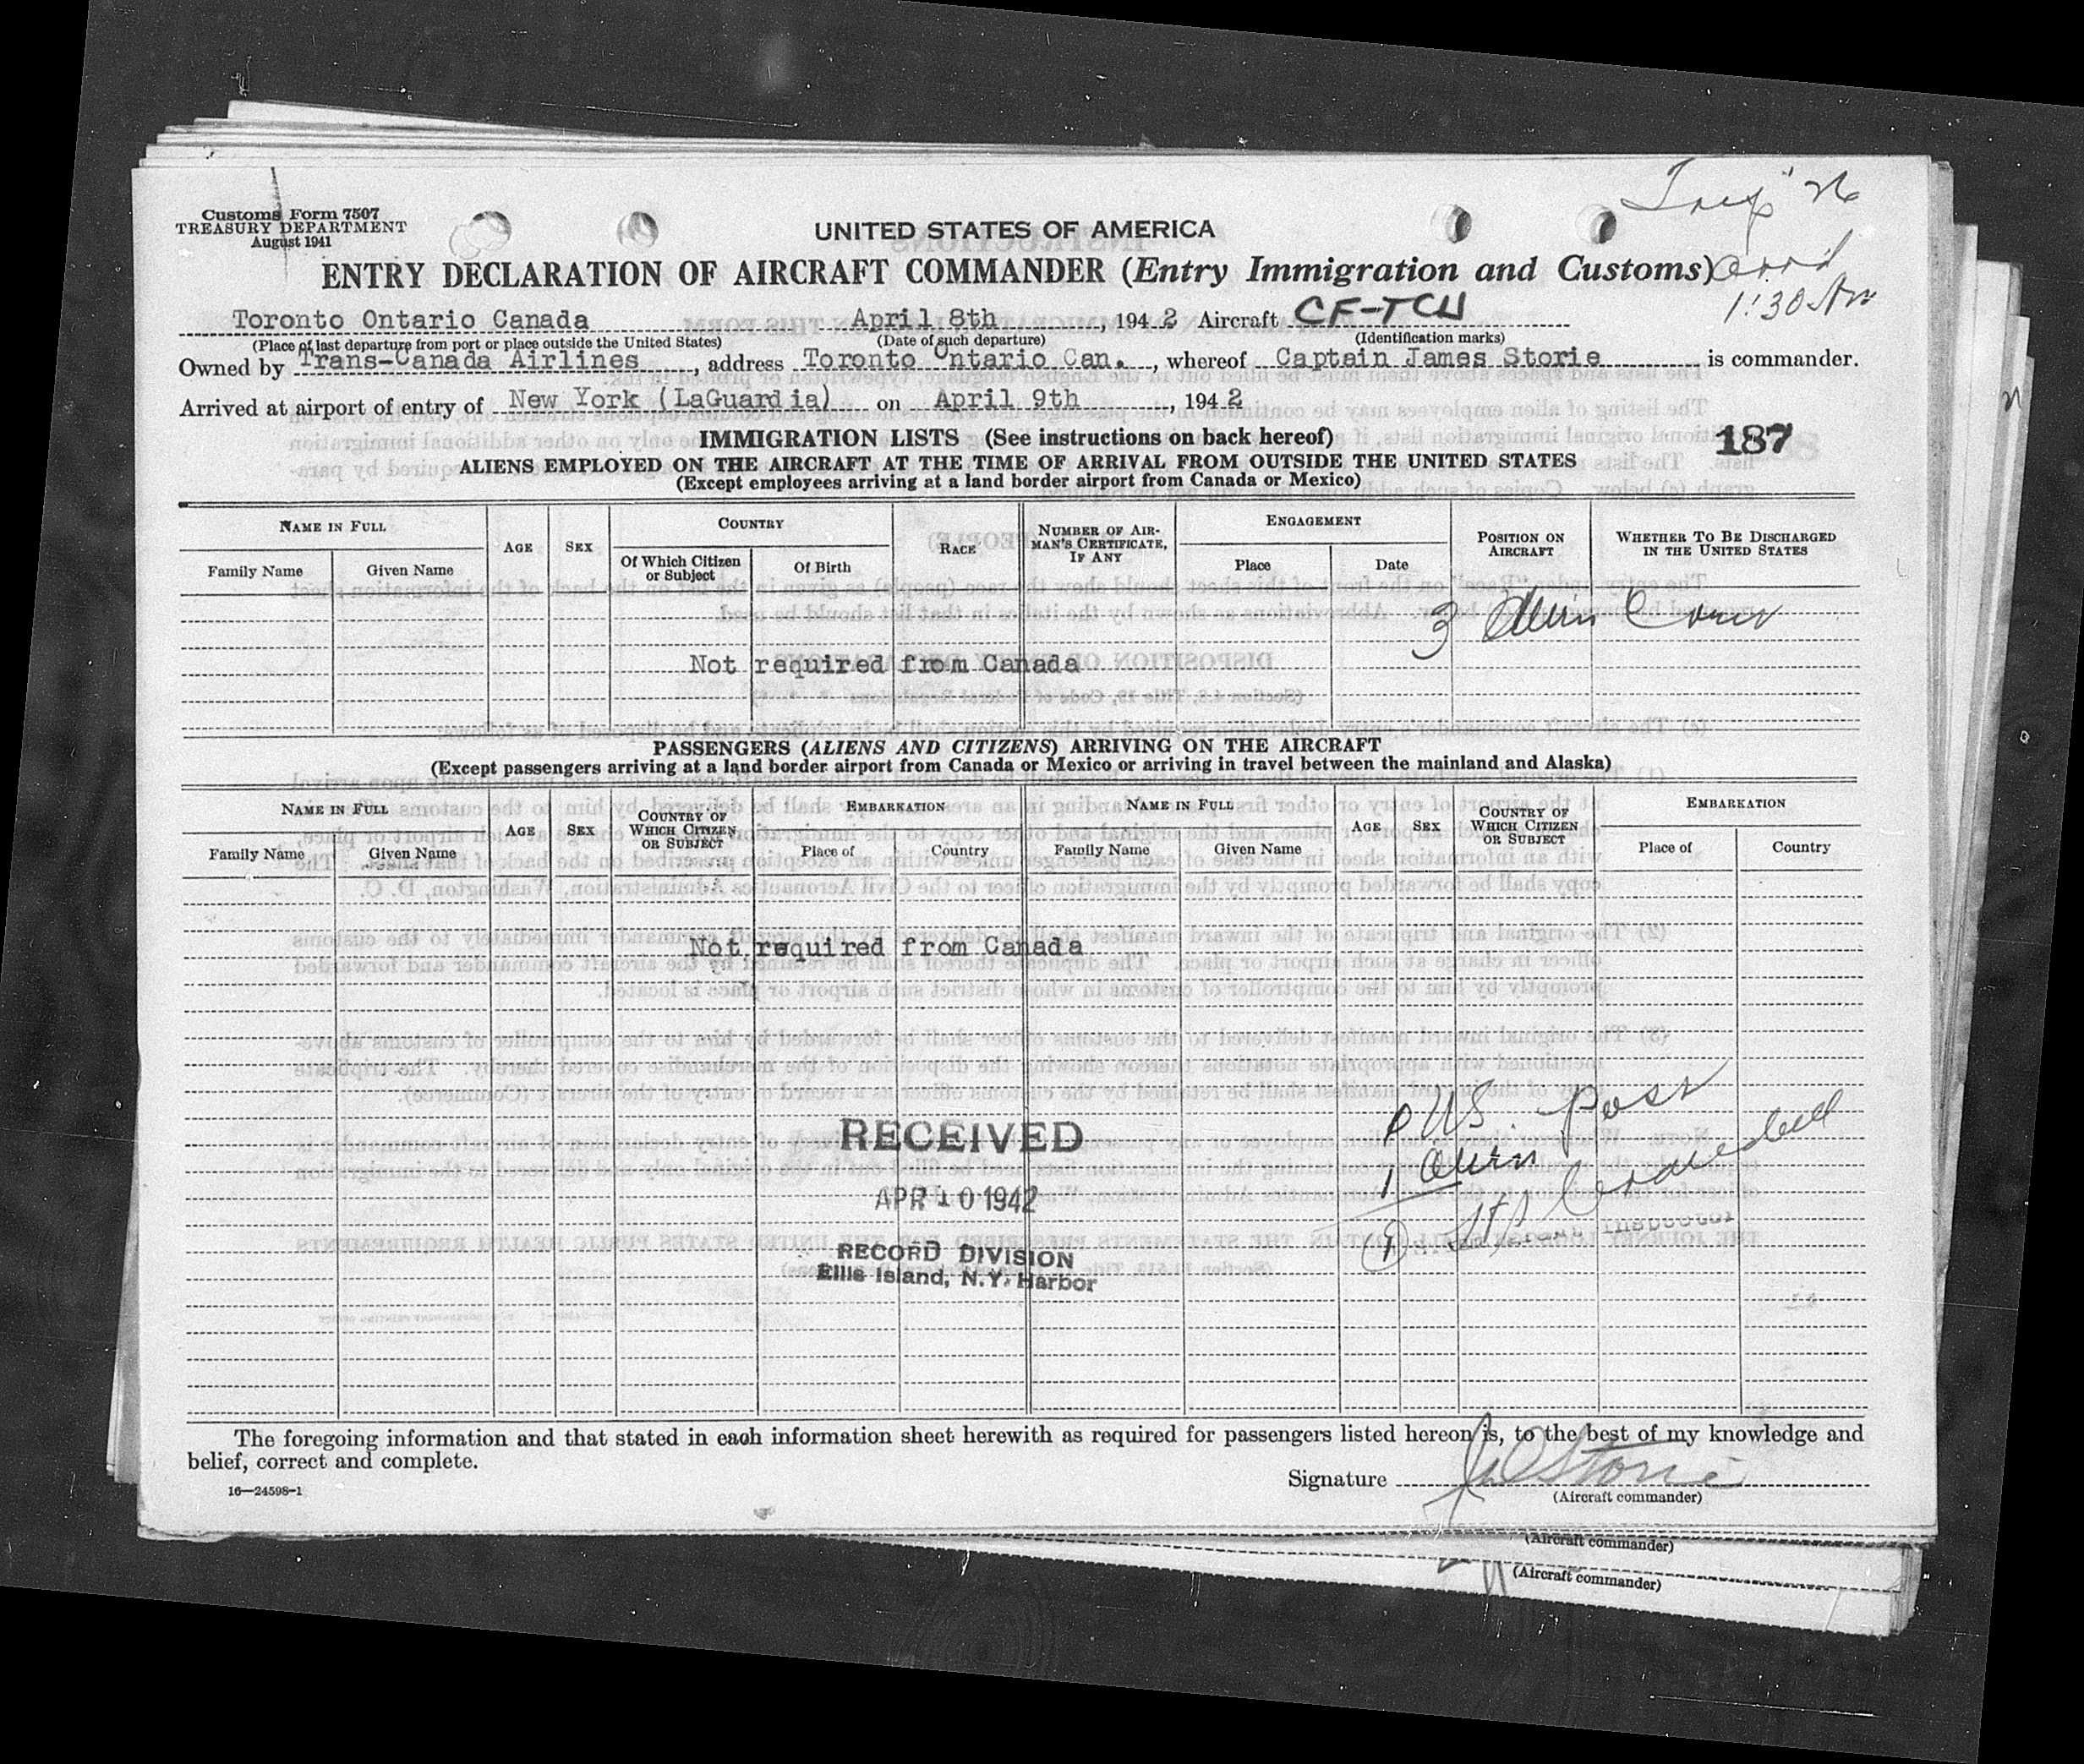 Customs Form 7507
TREASURY DEPARTMENT
August 1941
UNITED STATES OF AMERICA
ENTRY DECLARATION OF AIRCRAFT COMMANDER (Entry Immigration and Customs)
1:30 Am
Toronto Ontario Canada April 8th, 194 2 Aircraft
(Place of last departure from port or place outside the United States) (Date of such departure) (Identification marks)
Owned by Trans-Canada Airlines, address Toronto Ontario Can., whereof Captain James Storie is commander.
Arrived at airport of entry of New York (LaGuardia) on April 9th, 194 2
IMMIGRATION LISTS (See instructions on back hereof)
187
ALIENS EMPLOYED ON THE AIRCRAFT AT THE TIME OF ARRIVAL FROM OUTSIDE THE UNITED STATES
(Except employees arriving at a land border airport from Canada or Mexico)
NAME IN FULL
Family Name
Given Name
AGE
SEX
COUNTRY
Of Which Citizen or Subject
Of Birth
RACE
NUMBER OF AIRMAN'S CERTIFICATE, IF ANY
ENGAGEMENT
Place
Date
POSITION ON AIRCRAFT
WHETHER TO BE DISCHARGED IN THE UNITED STATES
3 Alien
Not required from Canada
PASSENGERS (ALIENS AND CITIZENS) ARRIVING ON THE AIRCRAFT
(Except passengers arriving at a land border airport from Canada or Mexico or arriving in travel between the mainland and Alaska)
NAME IN FULL
Family Name
Given Name
AGE
SEX
COUNTRY OF WHICH CITIZEN OR SUBJECT
EMBARKATION
Place of
Country
NAME IN FULL
Family Name
Given Name
AGE
SEX
COUNTRY OF WHICH CITIZEN OR SUBJECT
EMBARKATION
Place of
Country
Not required from Canada
US.
1 Alien
RECEIVED
APR 10 1942
RECORD DIVISION
Ellis Island, N.Y. Harbor
Inspector
The foregoing information and that stated in each information sheet herewith as required for passengers listed hereon is, to the best of my knowledge and
belief, correct and complete.
Signature Storie
(Aircraft commander)
16—24598-1
(Aircraft commander)
(Aircraft commander)